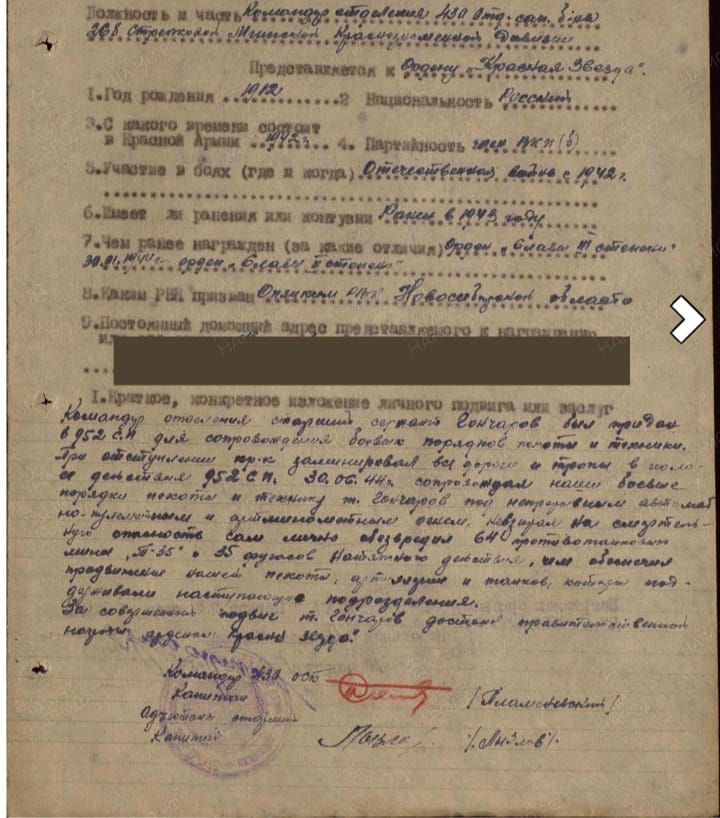 Должность и часть Командир отделения 430 Отд. сап. б-на
368 Стрелковой Краснознаменной Дивизии
Представляется к Ордену „Красная Звезда".
1. Год рождения 1912 2 Национальность Русский
3. С какого времени состоит
в Красной Армии 1942 г. 4. Партийность член ВКП(б)
5. Участие в боях (где и когда) Отечественная война с 1942 г.
6. Имеет ли ранения или контузии Ранен в 1943 году
7. Чем ранее награжден (за какие отличия) Орден „Слава III степени"
орден „Слава II степени"
8. Каким РВК призван РВК Новосибирской области
9. Постоянный домашний адрес представляемого к награждению
I. Краткое, конкретное изложение личного подвига или заслуг
Командир отделения старший сержант Гончаров был придан
в 952 С.П. для сопровождения боевых порядков пехоты и техники.
При отступлении пр-к заминировал все дороги и тропы в поло-
се действия 952 С.П. 30.06.44 г. сопровождая наши боевые
порядки пехоты и технику т. Гончаров под непрерывным автомат
но-пулеметным и артминометным огнем, невзирая на смертель-
ную опасность сам лично обезвредил 64 противотанковых
мины „Т-35" и 35 фугасов натяжного действия, чем обеспечил
продвижение нашей пехоты, артиллерии и танков, которые под-
держивали наступающие подразделения.
За совершенный подвиг т. Гончаров достоин правительственной
награды орденом Красная звезда".
Командир 430 ОСБ
Капитан /Пламеневский/
Адъютант старший
Капитан /Лызлов/.